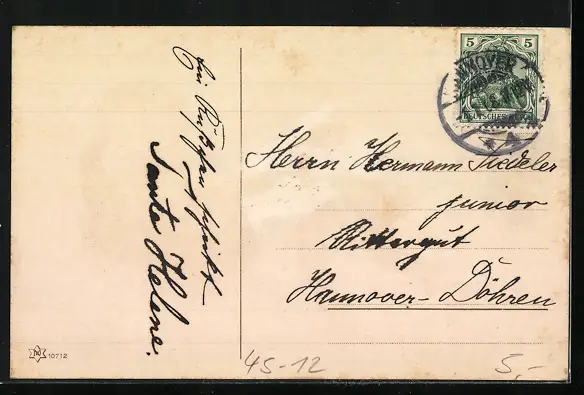 Ein Küßchen schickt
Tante Helene.
5 5
HANNOVER
DEUTSCHES REICH
Herrn Hermann Tiedeler
junior
Rittergut
Hannover-Döhren
10712
45-12
5,-